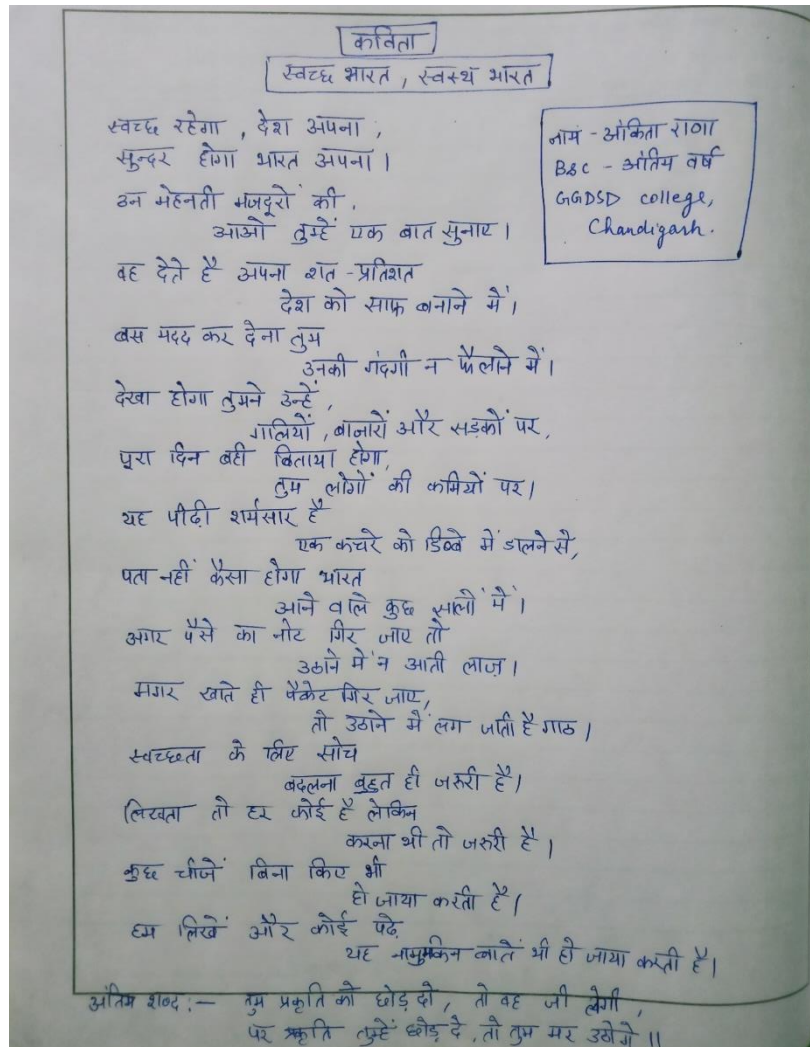 कविता
स्वच्छ भारत , स्वस्थ भारत
स्वच्छ रहेगा , देश अपना ,
सुन्दर होगा भारत अपना ।
उन मेहनती मजदूरों की ,
आओ तुम्हें एक बात सुनाए ।
वह देते है अपना शत - प्रतिशत
देश को साफ बनाने में ।
बस मदद कर देना तुम
उनकी गंदगी न फैलाने में ।
देखा होगा तुमने उन्हें ,
गालियों , बाजारों और सड़कों पर ,
पूरा दिन वही बिताया होगा ,
तुम लोगों की कमियों पर ।
यह पीढ़ी शर्मसार है
एक कचरे को डिब्बे में डालने से ,
पता नहीं कैसा होगा भारत
आने वाले कुछ सालों में ।
अगर पैसे का नोट गिर जाए तो
उठाने में न आती लाज़ ।
मगर खाते ही पैकेट गिर जाए ,
तो उठाने में लग जाती है गाठ ।
स्वच्छता के लिए सोच
बदलना बहुत ही जरुरी है ।
लिखता तो हर कोई है लेकिन
करना भी तो जरुरी है ।
कुछ चीजें बिना किए भी
हो जाया करती है ।
हम लिखें और कोई पढ़े
यह नामुमकिन बातें भी हो जाया करती है ।
अंतिम शब्द :— तुम प्रकृति को छोड़ दो , तो वह जी लेगी ,
पर प्रकृति तुम्हें छोड़ दे , तो तुम मर उठोगे ॥
नाम - अंकिता राणा
BSC - अंतिम वर्ष
GGDSD college,
Chandigarh.